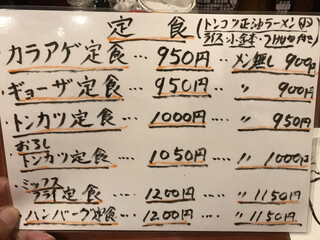 定食(トンコツ正油ラーメン
ライス 小
カラアゲ定食 .... 950円 ... メン無し 900円
ギョーザ定食 .... 950円 ... 〃 900円
トンカツ定食 .... 1000円 ... 〃 950円
おろし
トンカツ定食 .... 1050円 .... 〃 1000円
ミックス
フライ定食 .... 1200円 .... 〃 1150円
ハンバーグ定食 .... 1200円 .... 〃 1150円